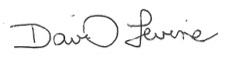 David Levine